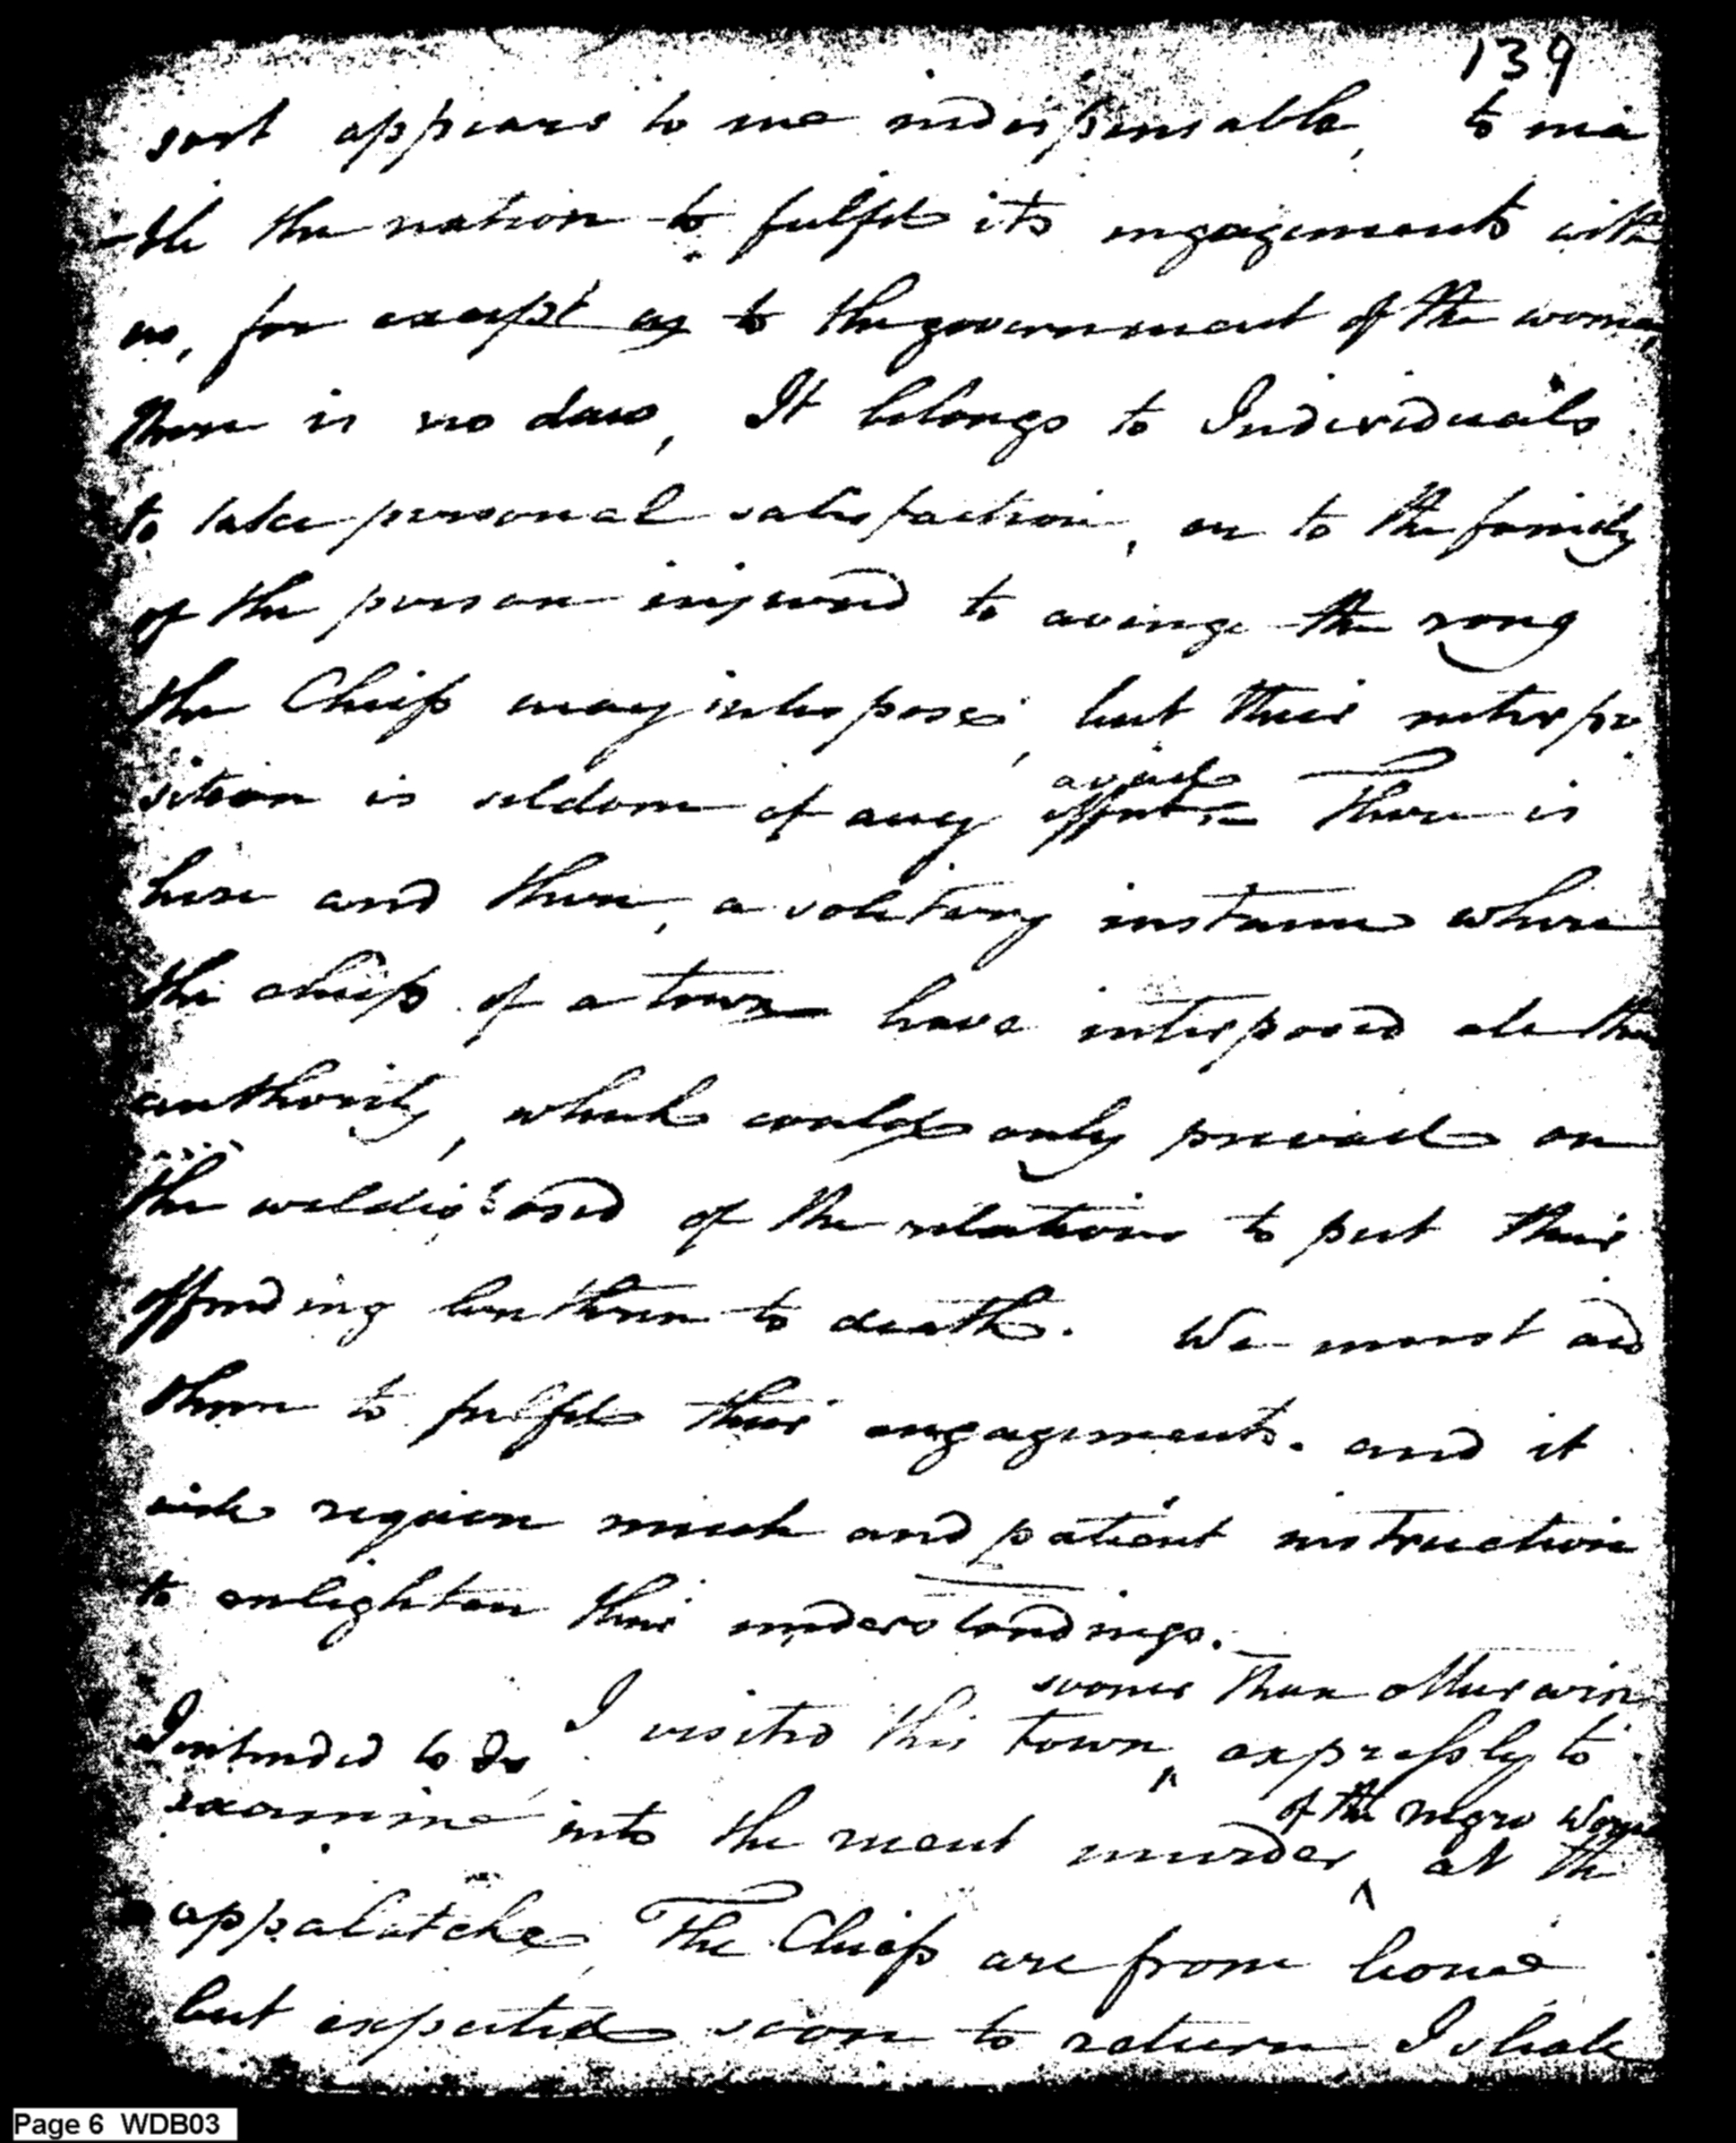 139
sort appears to me indispensable, to ena
-ble the nation to fulfil its engagements with
us, for except as to the government of the women
there is no law, It belongs to Individuals
to take personal satisfaction, or to the family
of the person injured to avenge the rong
the Chiefs may interpose, but their interpo
sition is seldom of any effect.
avail There is
here and there, a solitary instance where
the chiefs of a town have interposed all their
authority, which could only prevail on
the weldisposed of the relations to put their
offending brethren to death. We must aid
them to fulfil their engagements. and it
will require much and patient instruction
to enlighten their understandings.
sooner than otherwise
I intended to do I visited this town ^ expressly to
of the negro woman
examine into the recent murder ^ at the
appalatche, The Chiefs are from home
but expected soon to return I shall
Page 6 WDB03